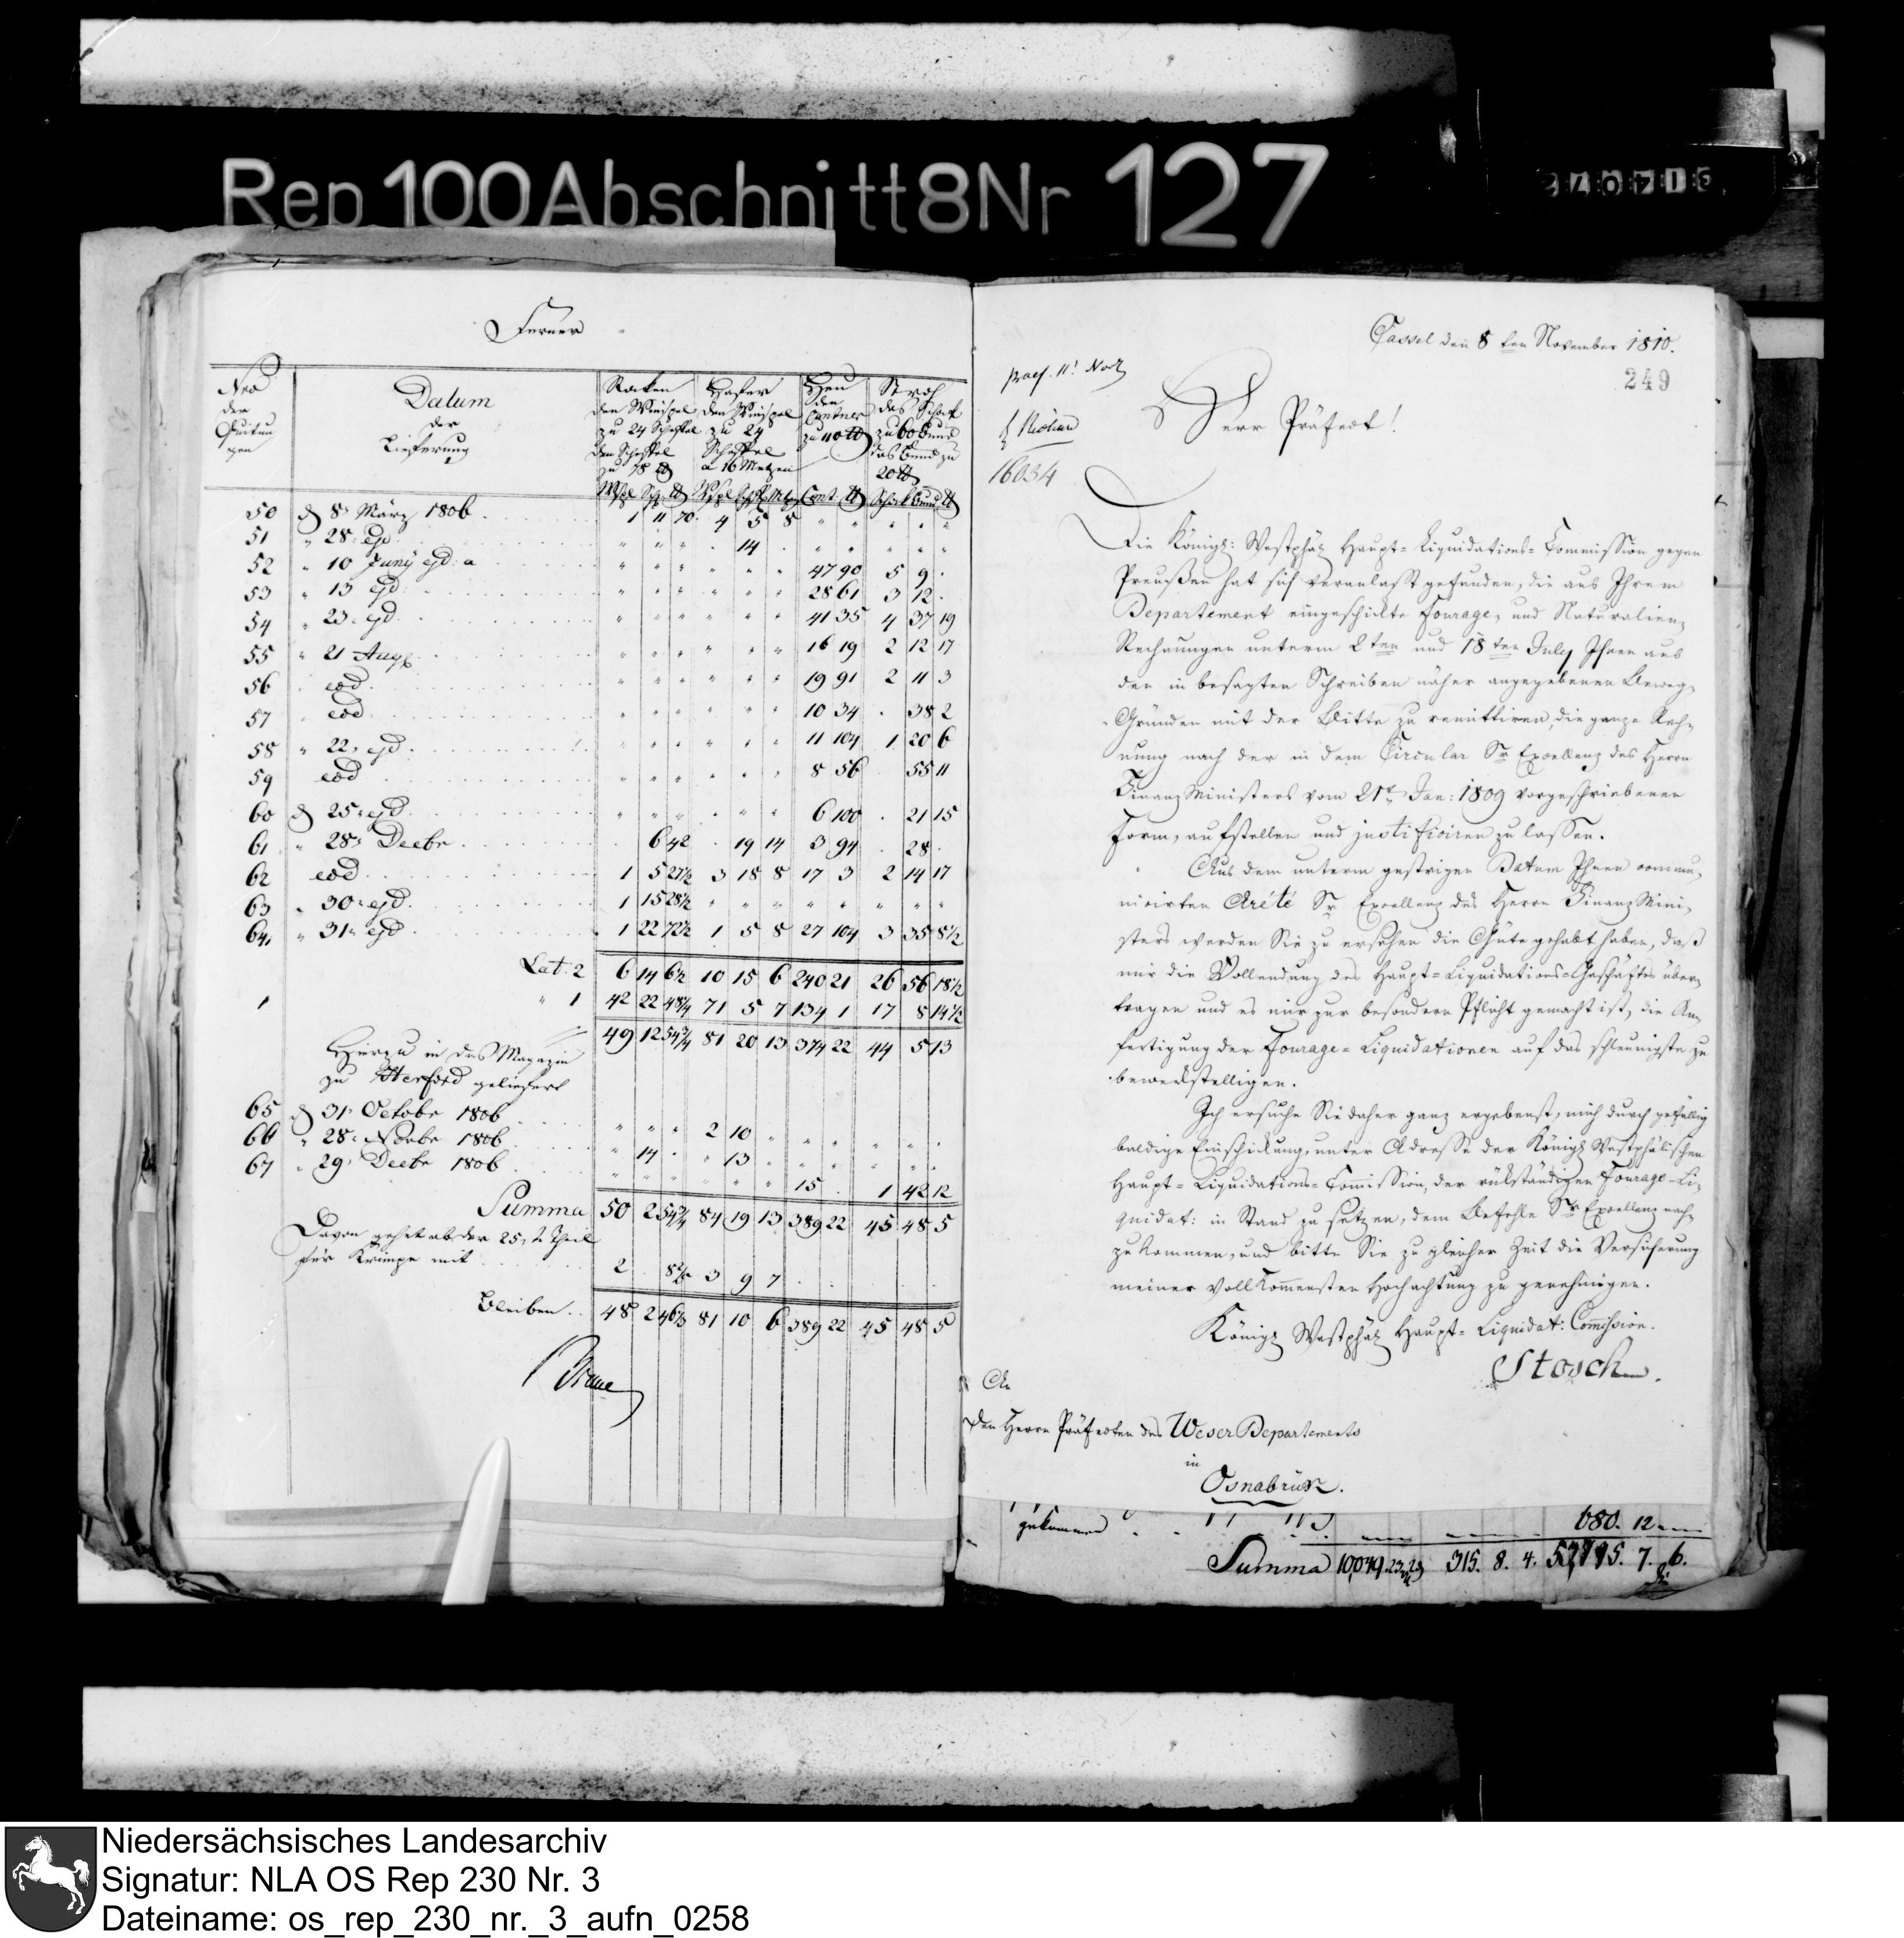 Rep 100 Abschnitt 8 Nr 127
Ferner
Nro der Quitungen | Datum der Lieferung | Rocken den Winspel zu 24 Scheffel den Scheffel zu 78 ℔ | Hafer den Winspel zu 24 Scheffel a 16 Metzen | Heu den Centner zu 110 ℔ | Stroh das Schock zu 60 Bund das Bund zu 20 ℔
Wspl Sch ℔ Wspl Schfl Mtz Cent. ℔ Schock Bund ℔
50 d 8 März 1806 1 11 70 4 5 8 " " " " "
51 " 28 ejd " " " . 14 . " " " " "
52 " 10 Juny ejd: a " " " " " " 47 90 5 9 .
53 " 13 ejd: " " " " " " 28 61 3 12 .
54 " 23 ejd. " " " " " " 41 35 4 37 19
55 " 21 Aug " " " " " " 16 19 2 12 17
56 eod. " " " " " " 19 91 2 11 3
57 eod. " " " " " " 10 34 . 38 2
58 " 22 ejd. " " " " " " 11 104 1 20 6
59 eod " " " " " " 8 56 55 11
60 d 25 ejd. " " " " " " 6 100 . 21 15
61 " 28 Decbr . 6 42 . 19 14 3 94 . 28 .
62 eod. 1 5 27½ 3 18 8 17 3 2 14 17
63 " 30 ejd. 1 15 28½ " " " " " " " "
64 " 31 ejd 1 22 72½ 1 5 8 27 104 3 35 8½
Lat: 2 6 14 6½ 10 15 6 240 21 26 56 18½
" 1 42 22 48¼ 71 5 7 134 1 17 8 14½
49 12 54¾ 81 20 13 374 22 44 5 13
Hierzu in das Magazin
zu Herford geliefert
65 d 31 Octobr 1806 " " " 2 10 " " " " " "
66 " 28 Novbr 1806 " 14 . " 13 " " " " " "
67 " 29 Decbr 1806 " " " " " " 15 . 1 42 12
Summa 50 2 54¾ 84 19 13 389 22 45 48 5
Davon gehet ab der 25te Theil
für Krimpe mit 2 . 3 9 7
Bleiben 48 2 81 10 6 389 22 45 48 5
Cassel den 8ten November 1810.
249
praes. 11t Nov
16034
Herr Präfect!
Die Königl: Westphäl Haupt-Liquidations-Commission gegen
Preußen hat sich veranlaßt gefunden, die aus Ihrem
Departement eingeschickte Fourage, und Naturalien,
Rechnungen unterm 2ten und 18ten July Ihnen aus
den in besagten Schreiben näher angegebenen Beweg,
Gründen mit der Bitte zu remittiren, die ganze Rech,
nung nach der in dem Circular Sr Excellenz des Herrn
FinanzMinisters vom 21t Jan: 1809 vorgeschriebenen
Form, aufstellen und justificiren zu lassen.
Aus dem unterm gestrigen Datum Ihnen commu,
nicirten Arété Sr Excellenz des Herrn FinanzMini,
sters werden Sie zu ersehen die Güte gehabt haben, daß
mir die Vollendung des Haupt-Liquidations-Geschäftes über,
tragen und es mir zur besondern Pflicht gemacht ist, die An,
fertigung der Fourage-Liquidationen auf das schleunigste zu
bewerkstelligen.
Ich ersuche Sie daher ganz ergebenst, mich durch gefällig
baldige Einschickung, unter Adresse der Königl Westphälischen
Haupt-Liquidations-Commission, der rükständigen Fourage-Li,
quidat: in Stand zu setzen, dem Befehle Sr Excellenz nach,
zukommen, und bitte Sie zu gleicher Zeit die Versicherung
meiner vollkommensten Hochachtung zu genehmigen.
Königl Westphäl Haupt-Liquidat: Commission.
Stosch
An
den Herrn Präfecten des WeserDepartements
in
Osnabrük.
gekommen 680. 12
Summa 315. 8. 4. 7. 6.
Niedersächsisches Landesarchiv
Signatur: NLA OS Rep 230 Nr. 3
Dateiname: os_rep_230_nr._3_aufn_0258